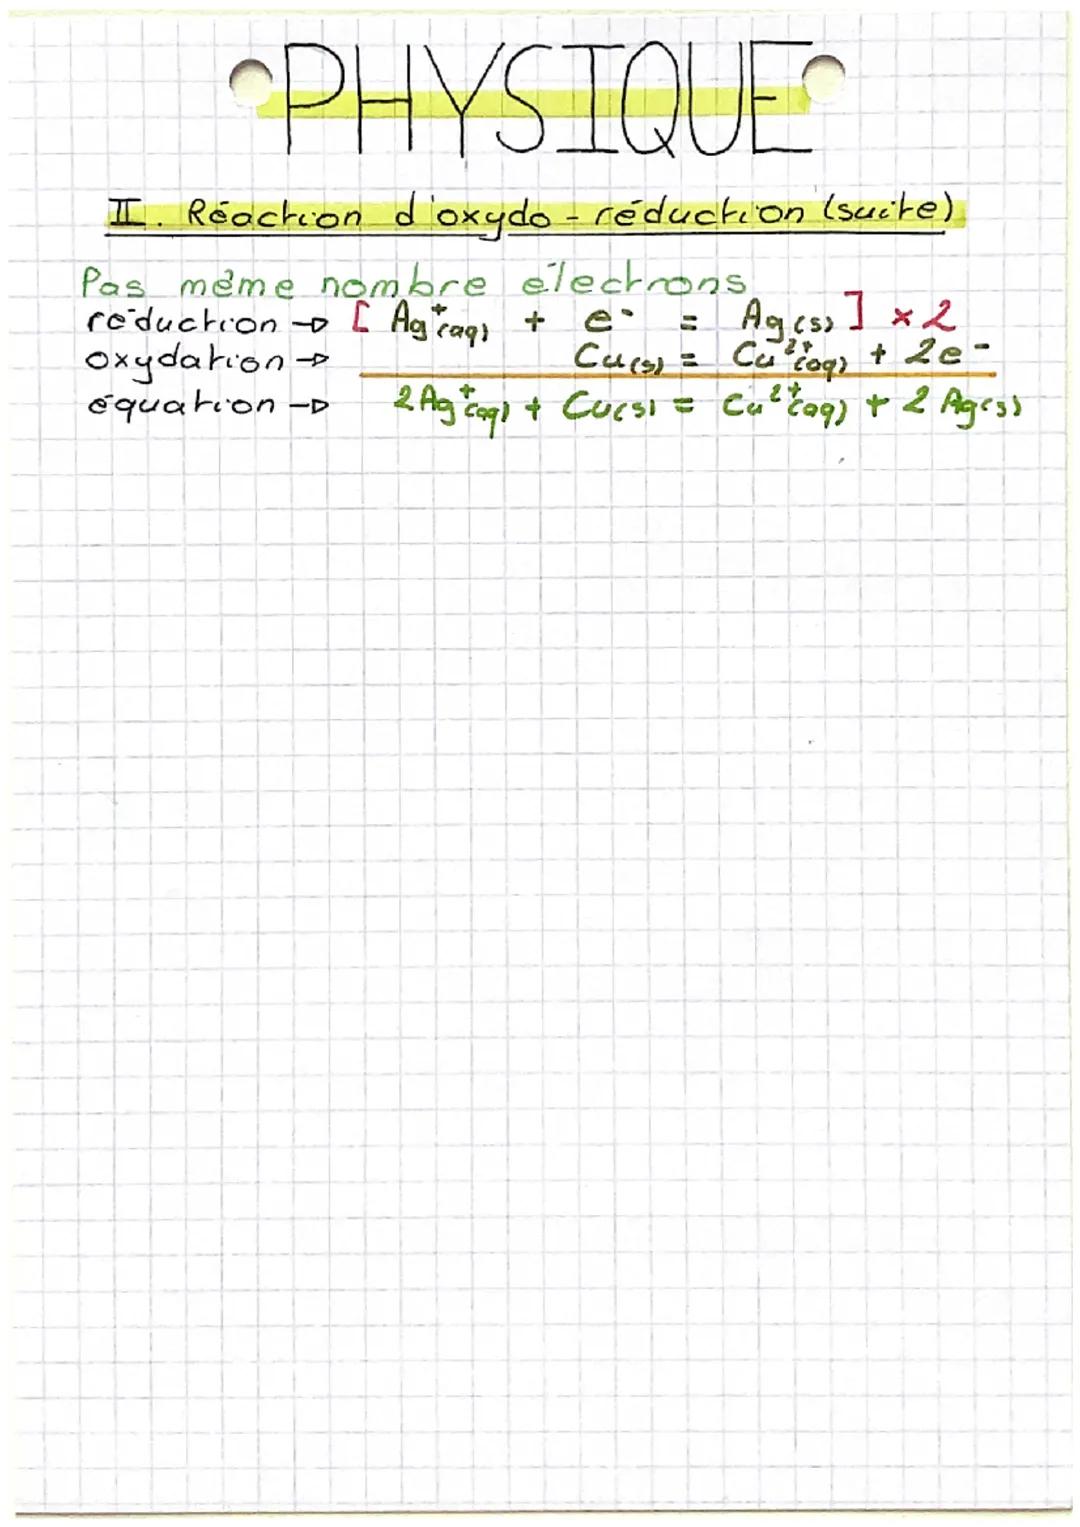 PHYSIQUE
II. Réaction d'oxydo-réduction (suite)
Pas même nombre électrons
réduction → [ Ag⁺(aq) + e⁻ = Ag(s) ] × 2
oxydation → Cu(s) = Cu²⁺(aq) + 2e⁻
équation → 2Ag⁺(aq) + Cu(s) = Cu²⁺(aq) + 2 Ag(s)